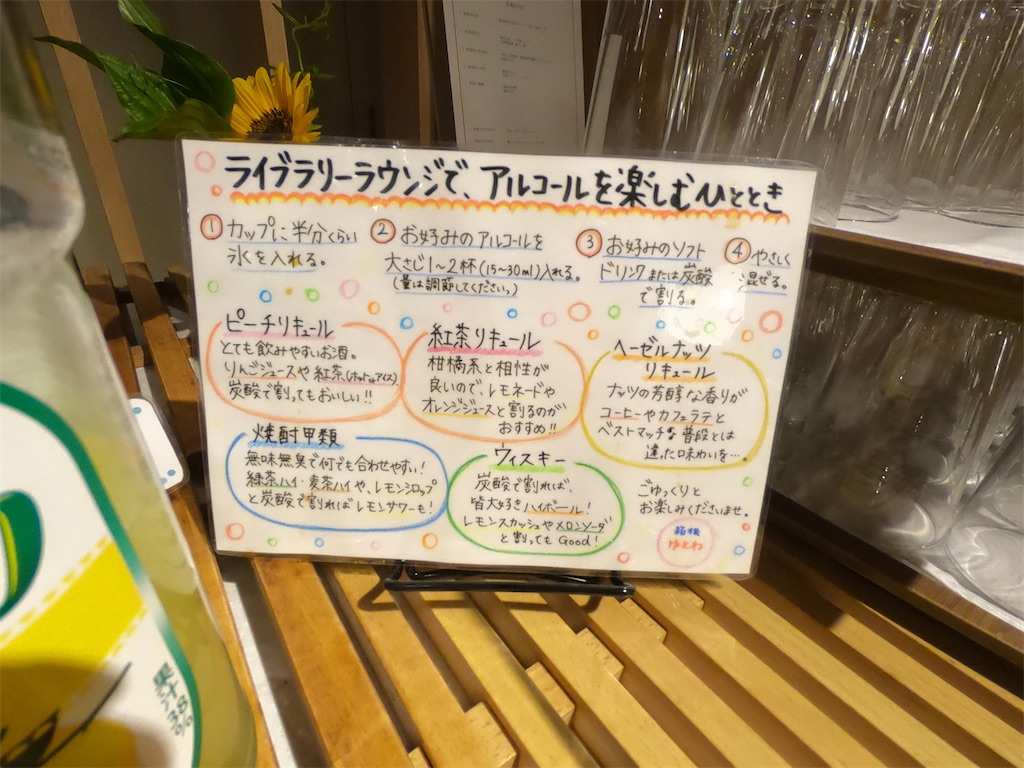 ライブラリーラウンジで、アルコールを楽しむひととき
① カップに半分くらい
氷を入れる。
② お好みのアルコールを
大さじ1～2杯(15～30ml)入れる。
(量は調節してください。)
③ お好みのソフト
ドリンクまたは炭酸
で割る。
④ やさしく
混ぜる。
ピーチリキュール
とても飲みやすいお酒。
りんごジュースや紅茶(ホットorアイス)
炭酸で割ってもおいしい!!
紅茶リキュール
柑橘系と相性が
良いので、レモネードや
オレンジジュースと割るのが
おすすめ!!
ヘーゼルナッツ
リキュール
ナッツの芳醇な香りが
コーヒーやカフェラテと
ベストマッチな普段とは
違った味わいを…。
焼酎甲類
無味無臭で何でも合わせやすい!
緑茶ハイ・麦茶ハイや、レモンシロップ
と炭酸で割ればレモンサワーも!
ウィスキー
炭酸で割れば、
皆大好きハイボール!
レモンスカッシュやメロンソーダ
と割ってもGood!
ごゆっくりと
お楽しみくださいませ。
箱根
ゆとわ
果汁3%